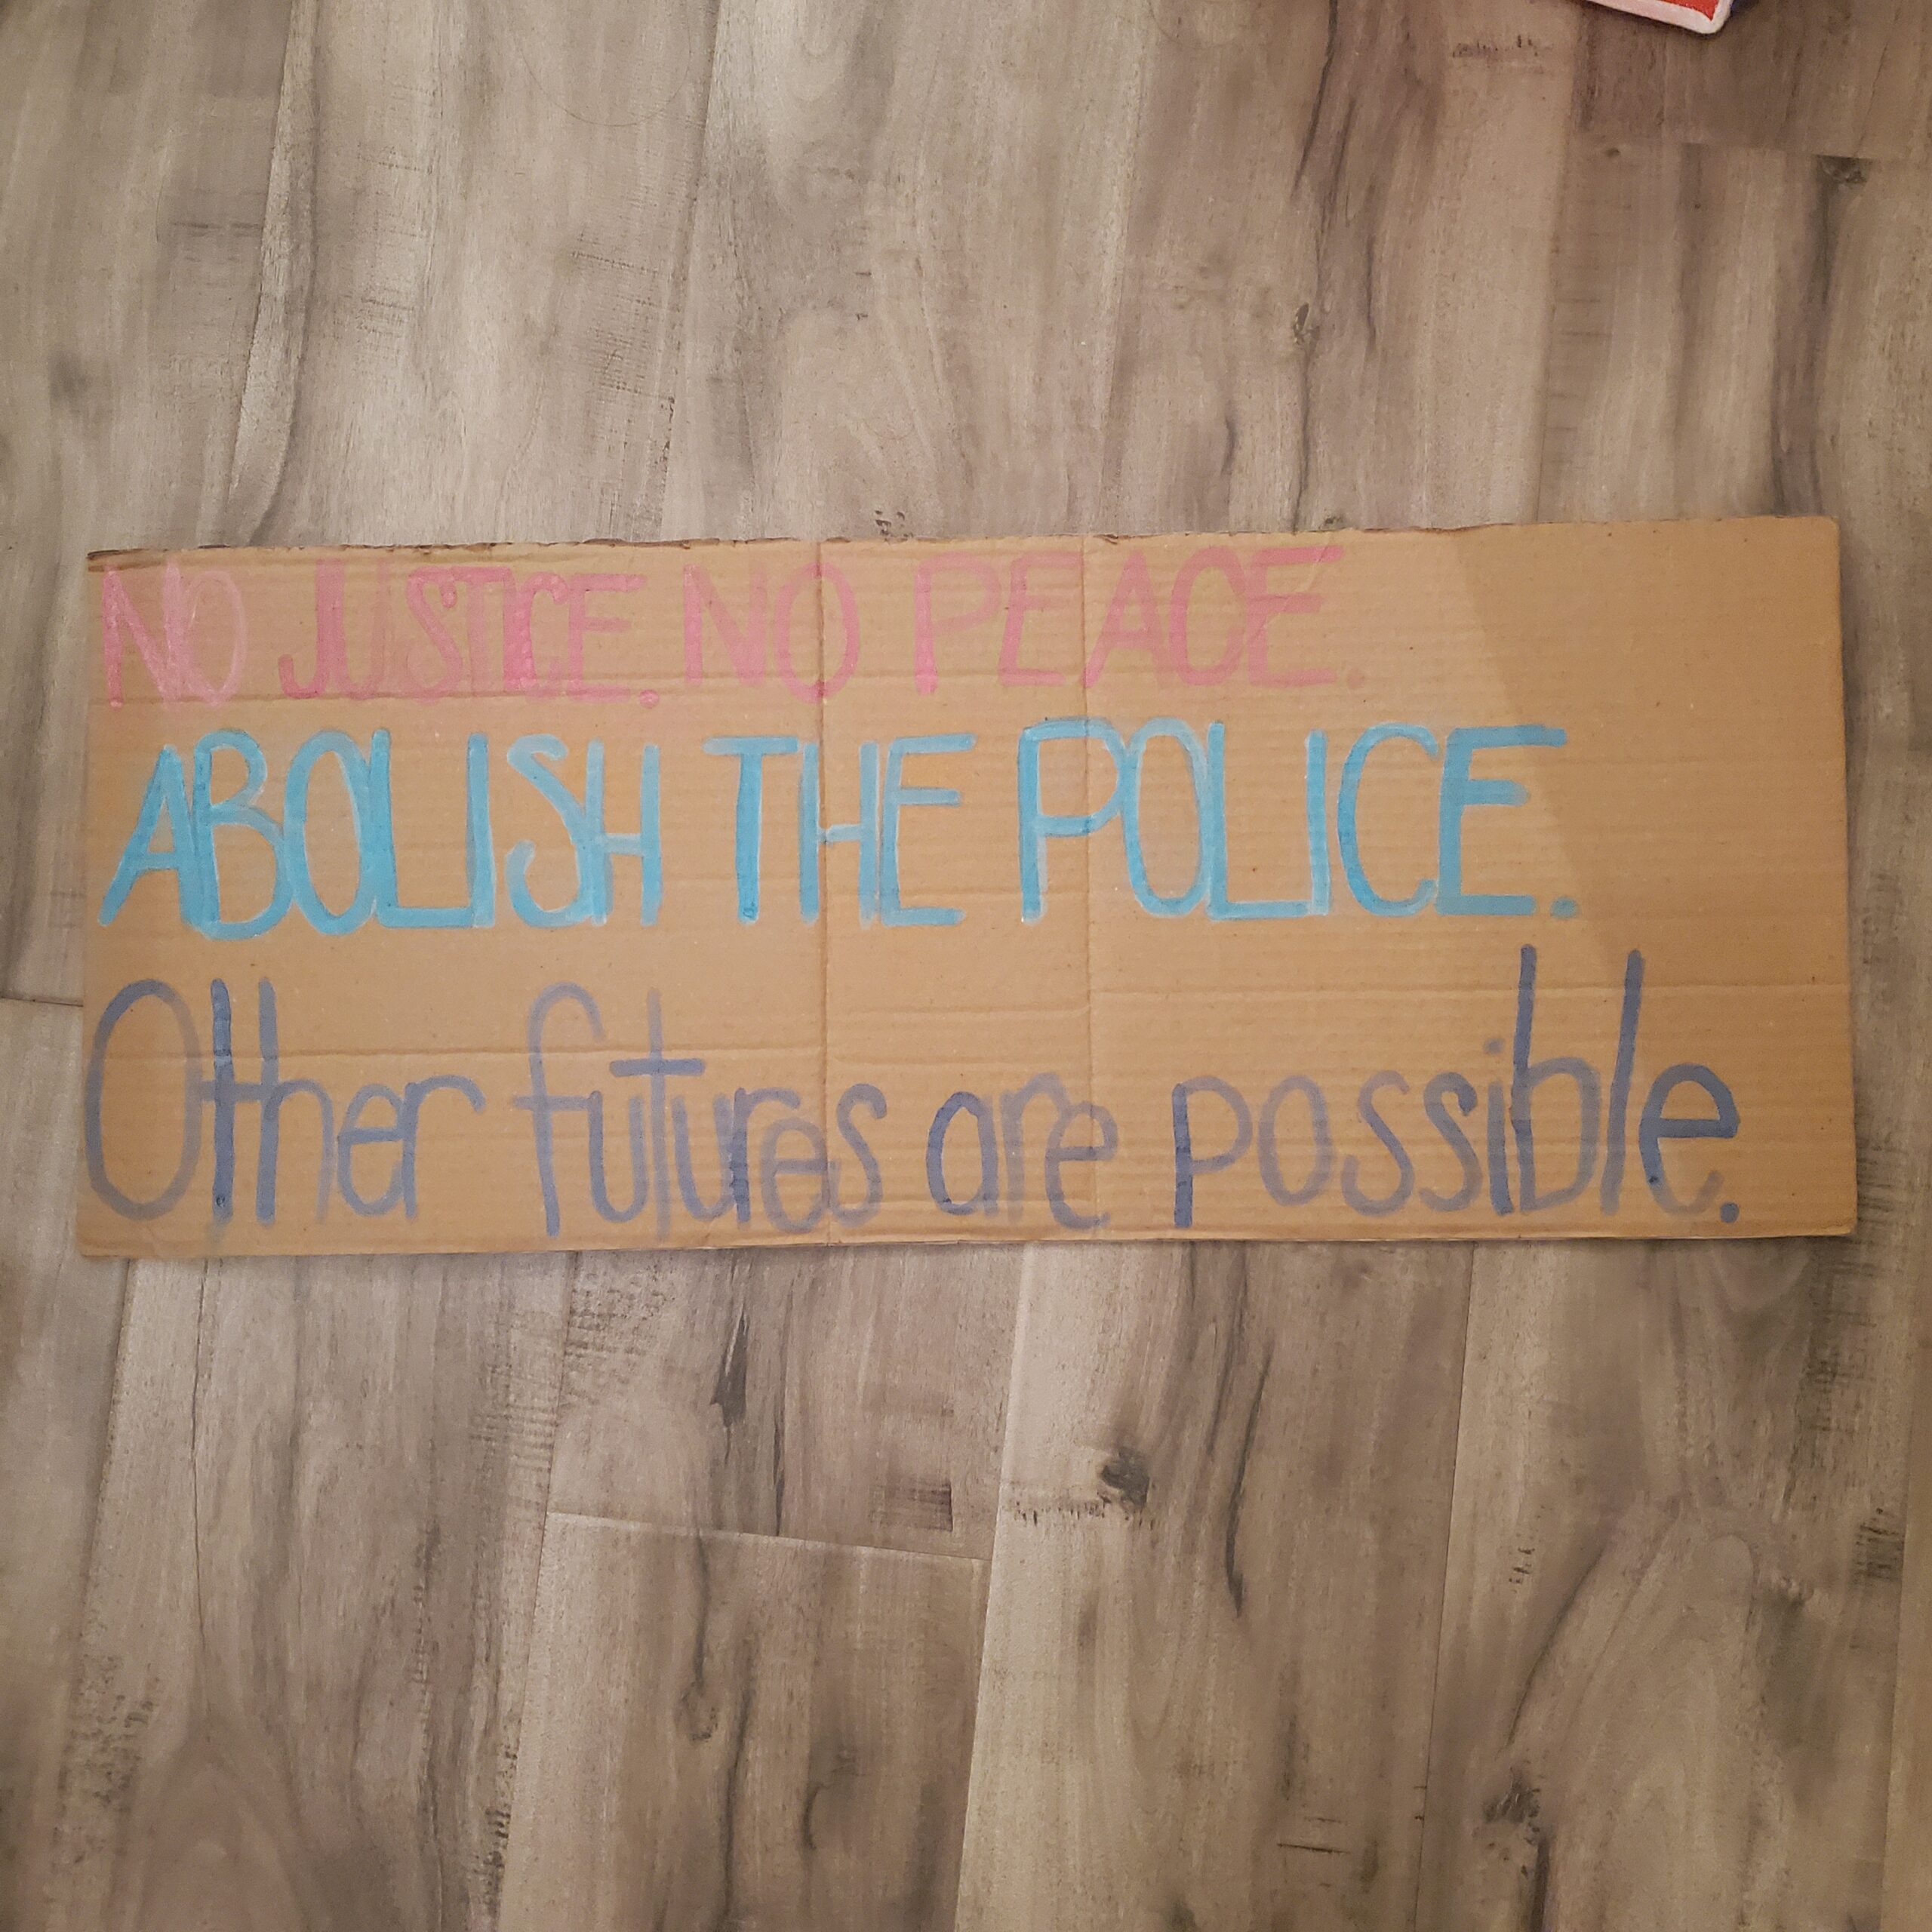 NO JUSTICE. NO PEACE.
ABOLISH THE POLICE.
Other futures are possible.